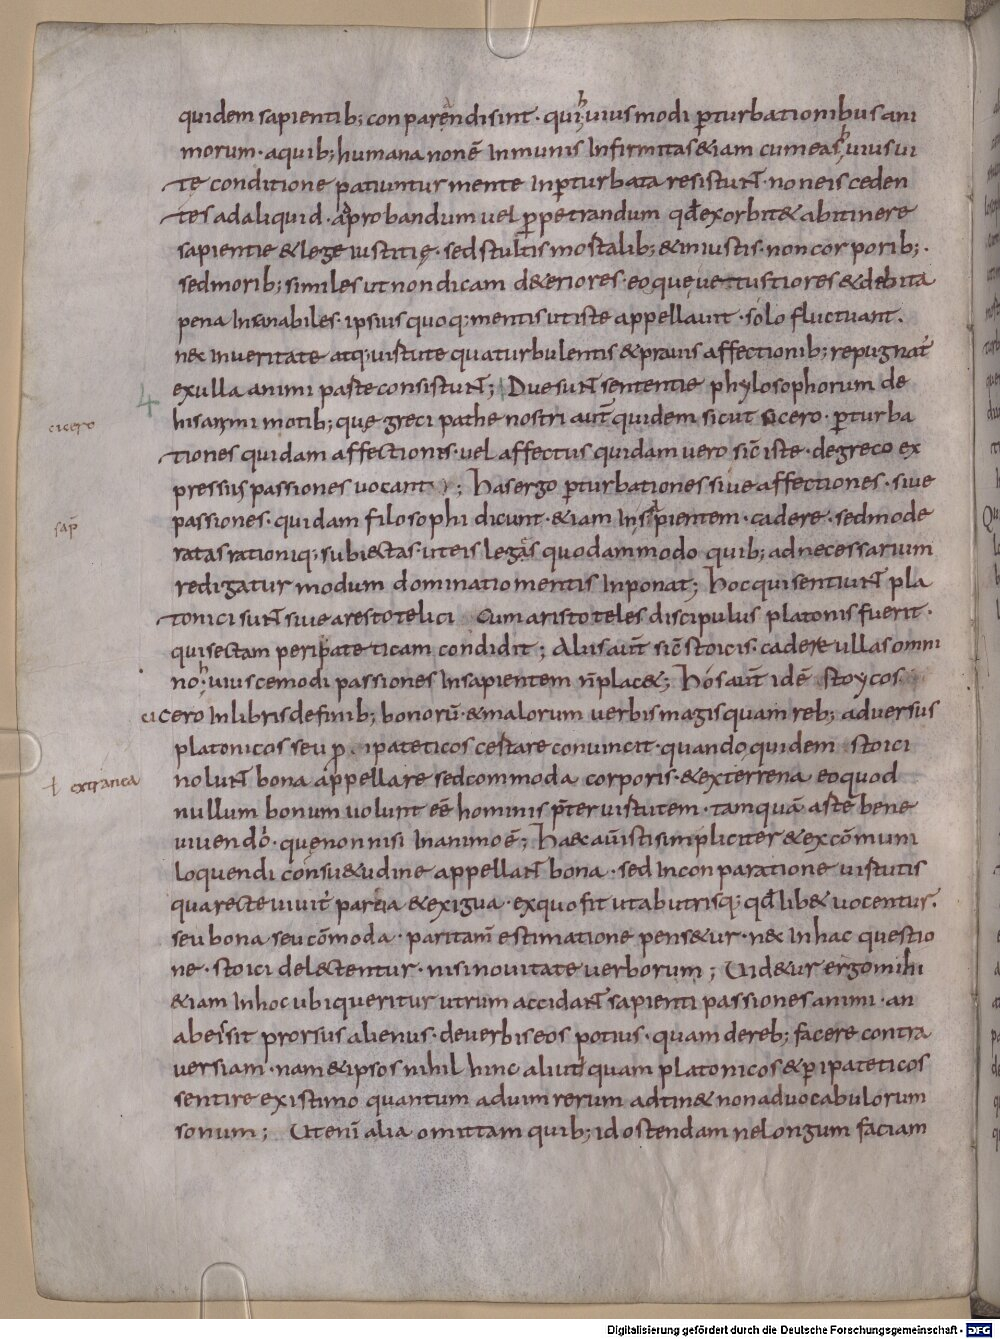 quidem sapientib; conparendi sint · qui huiusmodi ꝑturbationibus ani
morum · a quib; humana non ē inmunis infirmitas &iam cum eas huius ui
te conditione patiuntur mente inꝑturbata resistunt · non eis ceden
tes ad aliquid · aprobandum uel ꝑpetrandum qđ exorbit& ab itinere
sapientie & lege iustitię · sed stultis mostalib; & iniustis · non corporib; ·
sed morib; similes ut non dicam d&eriores · eo quę uetustiores & debita
pena insanabiles · ipsius quoq; mentis ut iste appellauit · solo fluctuant ·
nec in ueritate atq; uistute qua turbulentis & prauis affectionib; repugnat
ex ulla animi paste consistunt; Due sunt sententie phylosophorum de
4
his animi motib; quę greci pathe nostri aut̄ quidem sicut cicero · ꝑturba
cicero
tiones quidam affectiones · uel affectus quidam uero sic̄ iste · de greco ex
pressius passiones uocant; Has ergo ꝑturbationes siue affectiones · siue
passiones · quidam filosophi dicunt · &iam in sapientem · cadere · sed mode
sap̄
ratas rationiq; subiectas · ut eis legas quodammodo quib; ad necessarium
redigatur modum dominatio mentis inponat; Hoc qui sentiunt pla
tonici sunt siue arestotelici Cum aristoteles discipulus platonis fuerit ·
qui sectam peripateticam condidit; Aliis aut̄ sic̄ stoicis · cadere ullas omni
no huiuscemodi passiones in sapientem n̄ plac&; Hos aut̄ idē stoycos
cicero in libris de finib; bonorū · & malorum uerbis magis quam reb; aduersus
platonicos seu p . ipateticos cestare conuincit · quando quidem stoici
nolunt bona appellare sed commoda corporis · & exterrena eo quod
ł extranea
nullum bonum uolunt eē hominis p̄ter uistutem · tamquā astē bene
uiuendo · quę non nisi in animo ē; Haec aūt isti simpliciter & ex cōmuni
loquendi consu&udine appellant bona · sed in conparatione uistutis
qua recte uiuit parua & exigua · ex quo fit ut ab utrisq; qđ lib& uocentur ·
seu bona seu cōmoda · pari tam̄ estimatione pens&ur · nec in hac questio
ne · stoici delectentur · nisi nouitate uerborum; Uid&ur ergo mihi
&iam in hoc ubi queritur utrum accidant sapienti passiones animi · an
ab eis sit prorsus alienus · de uerbis eos potius · quam de reb; facere contra
uersiam · nam & ipsos nihil hinc aliut quam platonicos & ꝑipateticos
sentire existimo quantum ad uim rerum adtin& non ad uocabulorum
sonum; Ut eni alia omittam quib; id ostendam ne longum faciam
Digitalisierung gefördert durch die Deutsche Forschungsgemeinschaft - DFG